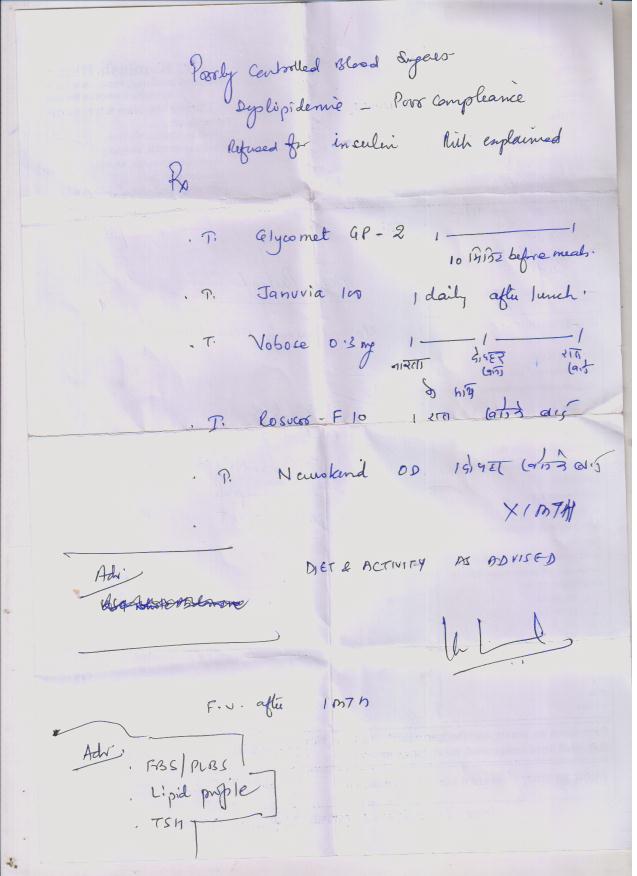 Poorly Controlled Blood Sugars
Dyslipidemia - Poor compliance
Refused for insulin Risk explained
Rx
. T. Glycomet GP-2 1 ——— 1
10 मिनिट before meals.
. T. Januvia 100 1 daily after lunch.
. T. Vobose 0.3 mg 1 — 1 — 1
नाश्ता दोपहर रात
के साथ
. T. Rosucor-F 10 1 रात खाने के बाद
. T. OD 1 दोपहर खाने के बाद
X 1 MTH
Adv.
DIET & ACTIVITY AS ADVISED
F.U. after 1 MTH
Adv.
. FBS/PLBS
. Lipid profile
. TSH